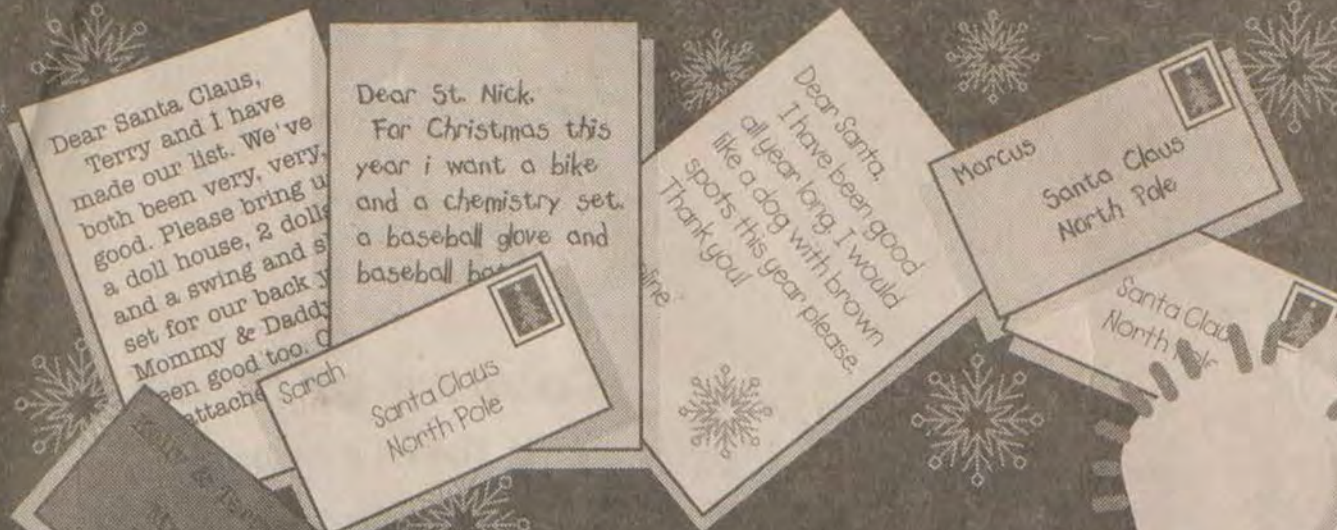 Dear Santa Claus,
Terry and I have
made our list. We've
both been very, very,
good. Please bring u
a doll house, 2 dolls
and a swing and s
set for our back y
Mommy & Daddy
een good too.
attache
Dear St. Nick.
For Christmas this
year i want a bike
and a chemistry set.
a baseball glove and
baseball
Dear Santa,
I have been good
all year long. I would
like a dog with brown
spots this year please.
Thank you!
line
Marcus
Santa Claus
North Pole
Santa Clau
North Pole
Sarah
Santa Claus
North Pole
Kelly & Terr